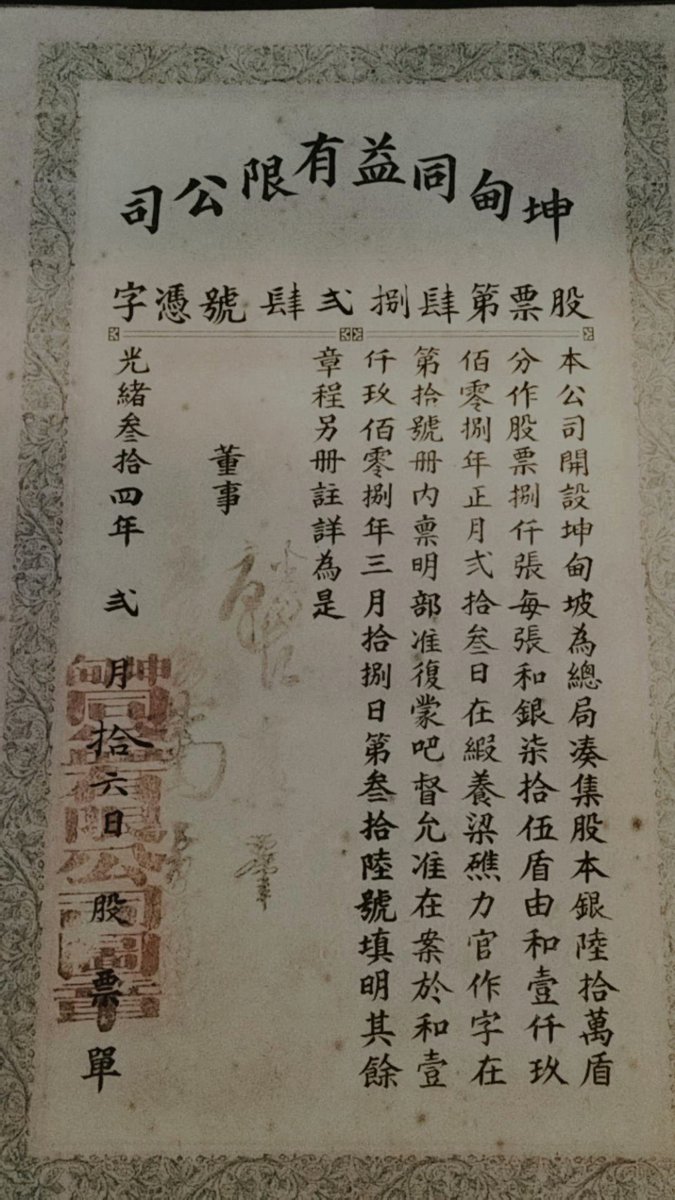 坤甸同益有限公司
股票第肆捌弍肆號憑字
本公司開設坤甸坡為總局凑集股本銀陸拾萬盾
分作股票捌仟張每張和銀柒拾伍盾由和壹仟玖
佰零捌年正月弍拾叁日在緞養梁礁力官作字在
第拾號册内禀明部准復蒙吧督允准在案於和壹
仟玖佰零捌年三月拾捌日第叁拾陸號填明其餘
章程另册註詳為是
董事
光緒叁拾四年弍月拾六日股票單
坤甸同益有限公司圖章